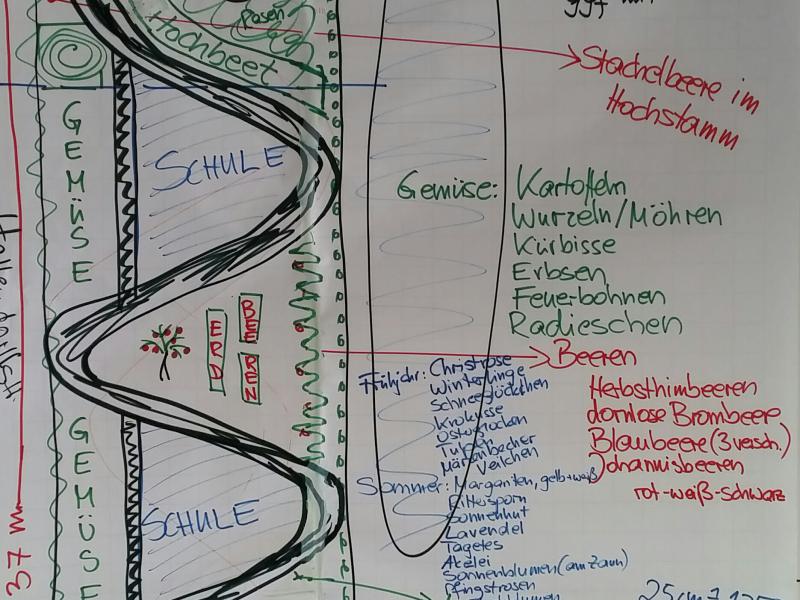 Rosen
Hochbeet
Stachelbeere im
Hochstamm
GEMÜSE
SCHULE
Gemüse: Kartoffeln
Wurzeln/Möhren
Kürbisse
Erbsen
Feuerbohnen
Radieschen
BEE
REN
ERD
Beeren
Herbsthimbeeren
dornlose Brombeere
Blaubeere (3 versch.)
Johannisbeeren
rot-weiß-schwarz
Frühjahr: Christrose
Winterlinge
Schneeglöckchen
Krokusse
Osterglocken
Tulpen
Märzenbecher
Veilchen
Sommer: Margariten, gelb+weiß
Rittersporn
Sonnenhut
Lavendel
Tagetes
Akelei
Sonnenblumen (am Zaun)
Pfingstrosen
GEMÜSE
SCHULE
37 m